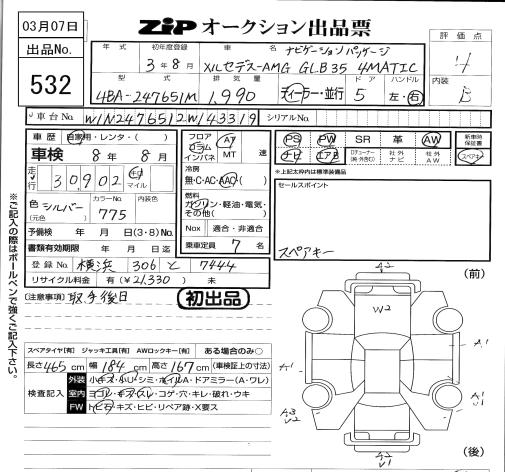 03月07日
ZIP オークション出品票
出品No.
532
年式
初年度登録
3年8月
車名
ナビゲーションパッケージ
メルセデス-AMG GLB35 4MATIC
評価点
4
内装
B
型式
4BA-247651M
排気量
1,990
ディーラー・並行
ドア
5
ハンドル
左・右
車台No.
W1N2476512W143319
シリアルNo.
車歴 自家用・レンタ・( )
車検 8年8月
走行 30,902 km マイル
色 (元色) シルバー
カラーNo. 775
内装色
予備検 年 月 日(3・8)No.
書類有効期限 年 月 日迄
登録No. 横浜 306 と 7444
リサイクル料金 有(¥21,330) 未
フロア コラム インパネ
AT
MT 速
冷房
無・C・AC・AAC
燃料
ガソリン・軽油・電気・その他( )
Nox 適合・非適合
乗車定員 7 名
PS PW SR 革 AW
ナビ エアB 社外ナビ 社外AW
新車時保証書
スペアキー
※上記太枠内は標準装備品
セールスポイント
スペアキー
(注意事項) 取予後日
初出品
スペアタイヤ[有] ジャッキ工具[有] AWロックキー[有] ある場合のみ○
長さ465cm 幅184cm 高さ167cm (車検証上の寸法)
検査記入
外装 小キズ・小U・シミ・ホイルA・ドアミラー(A・ワレ)
室内 ヨゴレ・キズ・スレ・コゲ・穴・キレ・破れ・ウキ
FW トビ石・キズ・ヒビ・リペア跡・X要ス
※ご記入の際はボールペンで強くご記入下さい。
(前)
A2
W2
A1
A1
A3
V2
A1
A2
V1
(後)